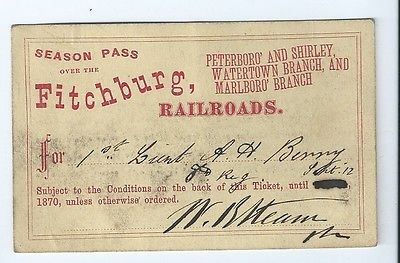 SEASON PASS
OVER THE
Fitchburg,
PETERBORO' AND SHIRLEY,
WATERTOWN BRANCH, AND
MARLBORO' BRANCH
RAILROADS.
For 1st Lieut. A H Berry
Reg. Sept. 12
Subject to the Conditions on the back of this Ticket, until
1870, unless otherwise ordered.